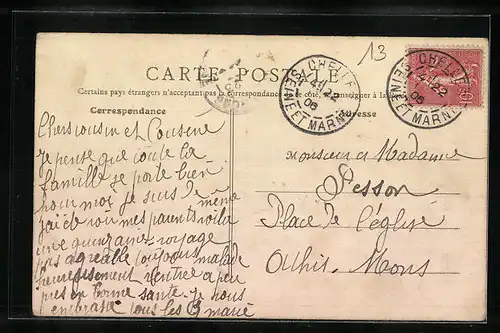 13
CARTE POSTALE
Certains pays étrangers n'acceptant pas la correspondance de ce côté, se renseigner à la
Correspondance
Adresse
CHELLES
SEINE ET MARNE
22
06
CHELLES
SEINE ET MARNE
22
06
Chers cousin et Cousine
Je pense que toute la
famille se porte bien
pour moi je suis de même
j'ai été voir mes parents voila
une quinzaine voyage
pas agreable toujours malade
heureusement rentrée a peu
pres en bonne santé Je vous
embrasse tous les
Monsieur et Madame
Pesson
Place de l'église
Athis-Mons